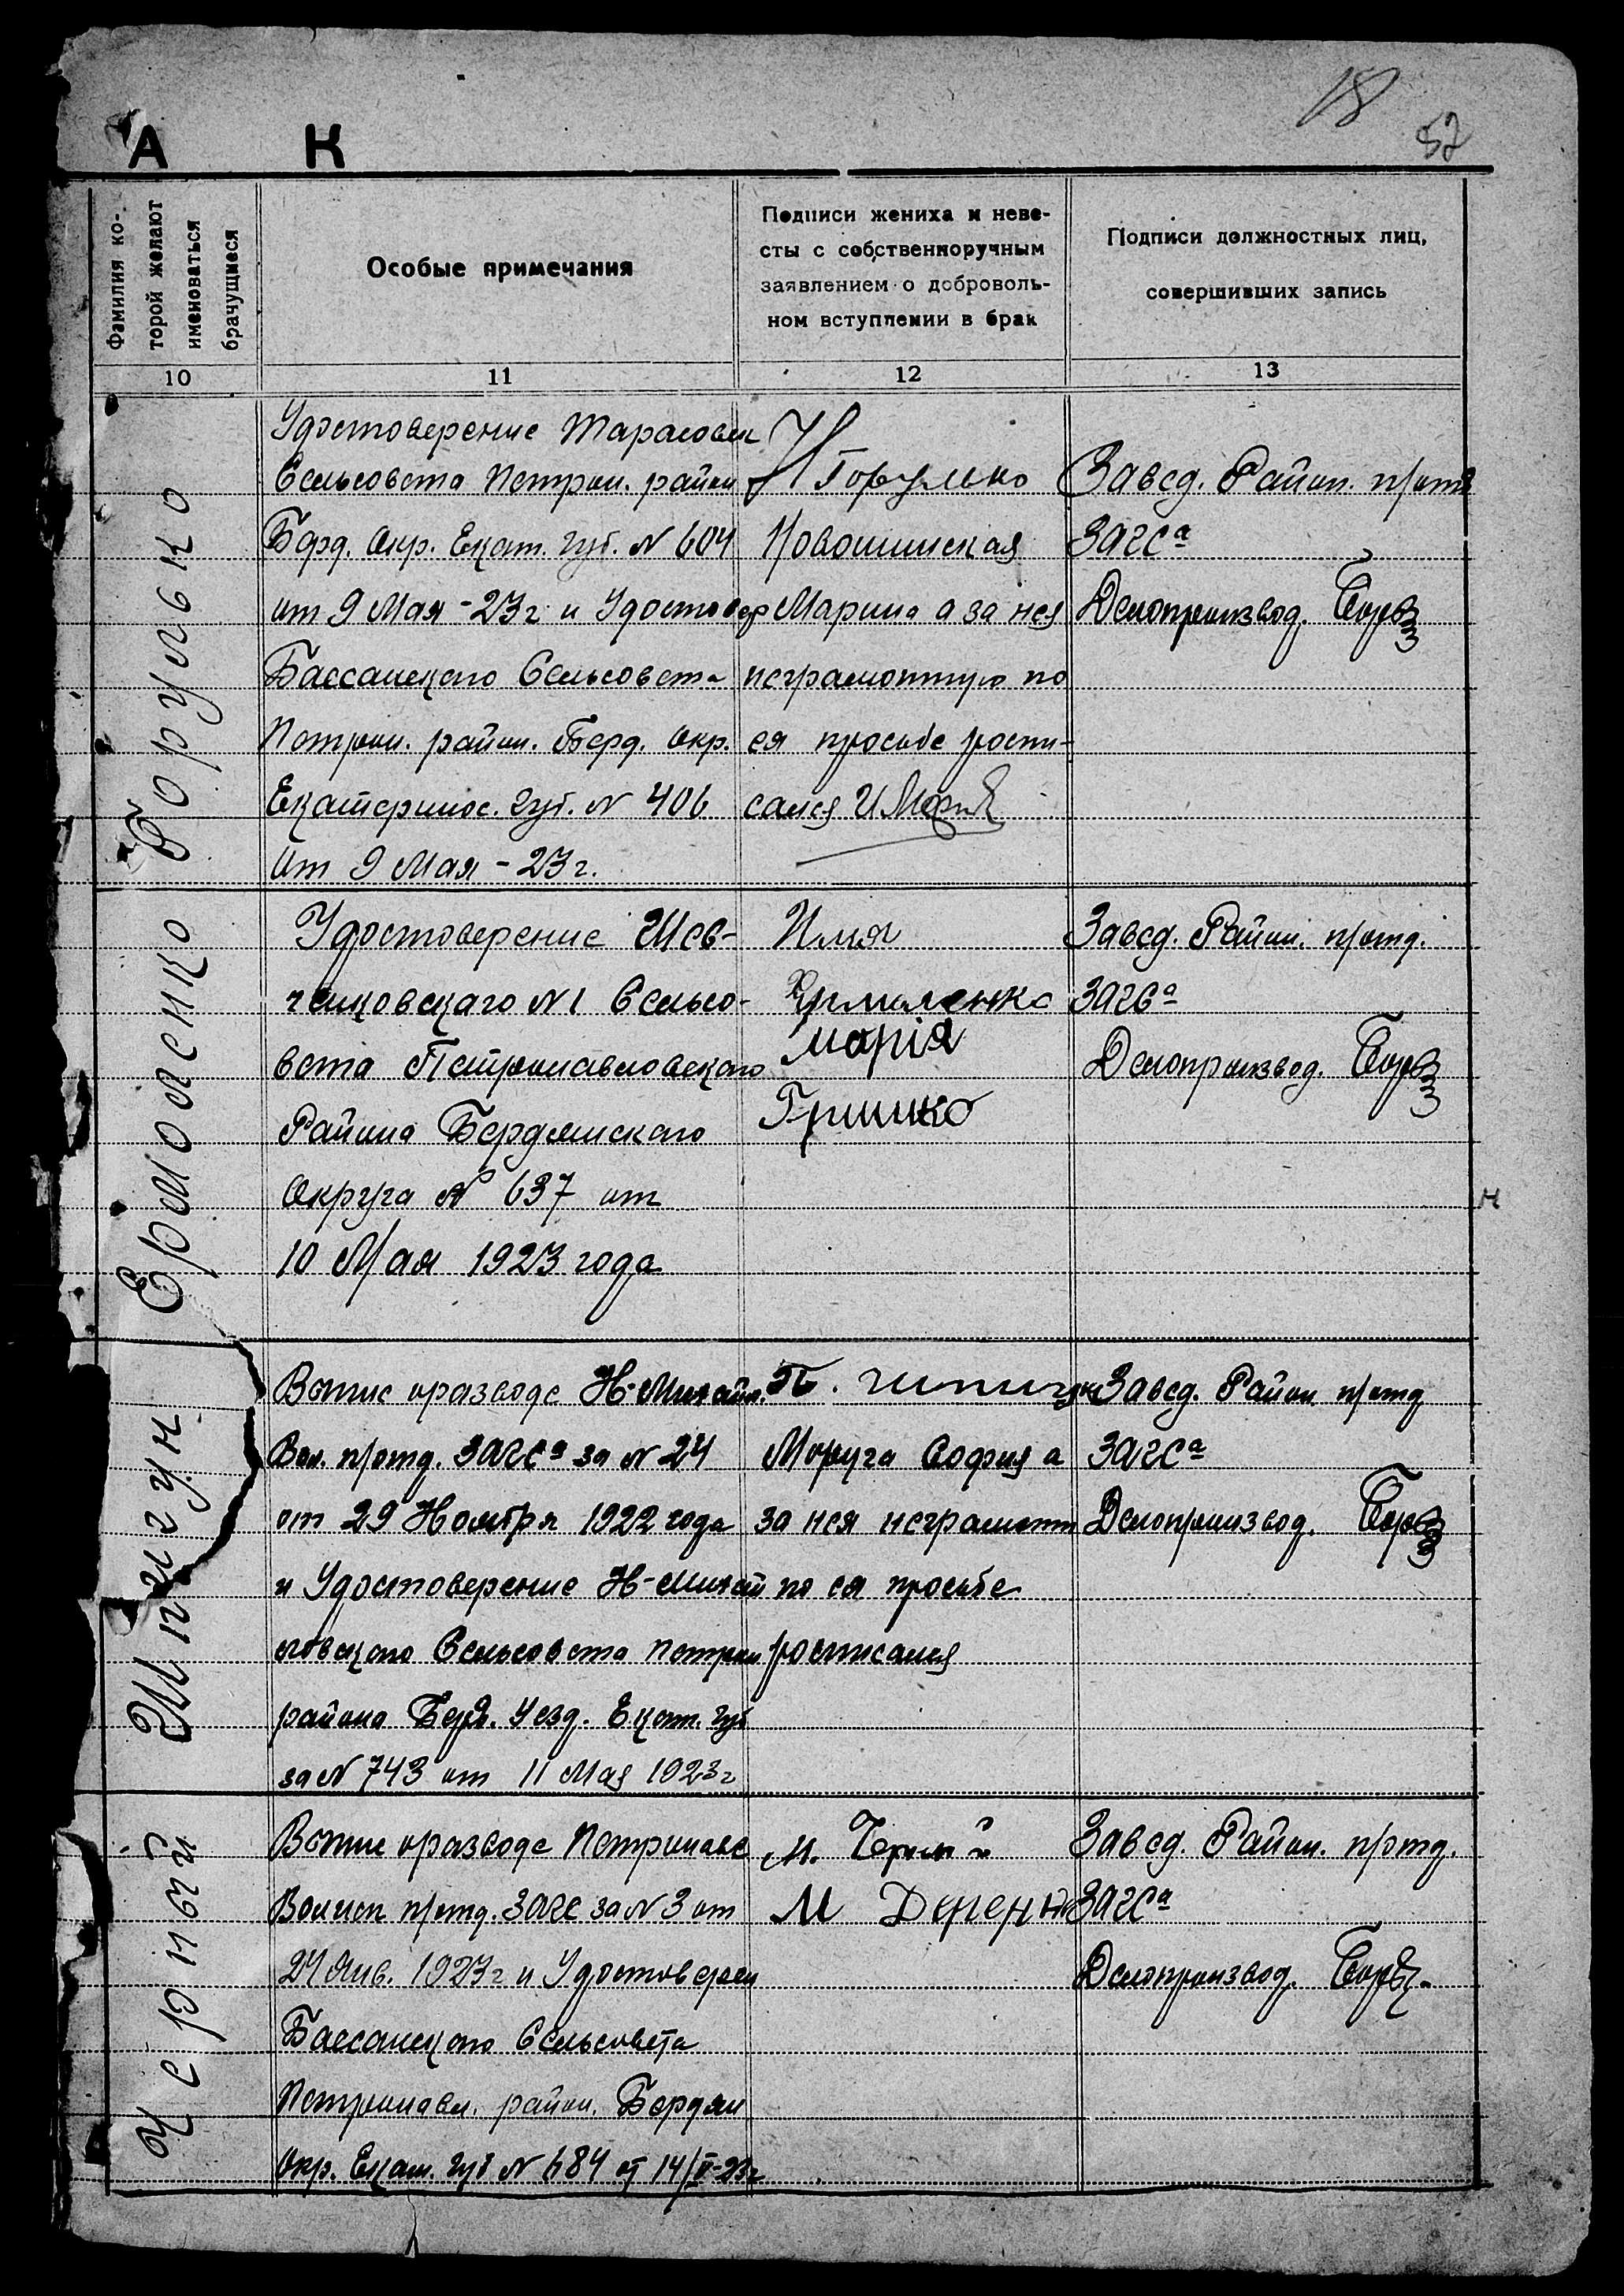 18
52
А К
Фамилия ко-
торой желают
именоваться
брачущиеся
Особые примечания
Подписи жениха и неве-
сты с собственноручным
заявлением о доброволь-
ном вступлении в брак
Подписи должностных лиц,
совершивших запись
10
11
12
13
Борулько
Удостоверение Тарасовск
Сельсовета Петроп. район
Бард. Окр. Екат. губ. N 604
от 9 Мая - 23 г. и Удостовер
Бассанского Сельсовета
Петропп. район. Берд. Окр.
Екатеринос. губ. N 406
От 9 Мая - 23 г.
Борулько
Новошинская
Марина а за нея
неграмотную по
ея просьбе роспи-
сался
Завед. Район. п/отд
ЗАГСа
Делопроизвод.
Ермоленко
Удостоверение Шев-
ченковскаго N 1 Сельсо-
вета Петропавловскаго
Района Бердянскаго
Округа N 637 от
10 Мая 1923 года
Илья
Ермоленко
Марія
Гришко
Завед. Район. п/отд.
ЗАГСа
Делопроизвод.
н
Шпигун
Выпис о разводе Н-Михайл.
Вол. п/отд. ЗАГСа за N 24
от 29 Ноября 1922 года
и Удостоверение Н-Михай
ловского Сельсовета Петроп
района Берд. Уезд. Екат. губ
за N 743 от 11 Мая 1923 г
Моруга София а
за нея неграмотн
по ея просьбе
росписался
Завед. Район п/отд
ЗАГСа
Делопроизвод.
Черный
Выпис о разводе Петропавл
Волисп п/отд. ЗАГС за N 3 от
24 Янв. 1923 г и Удостоверен
Бассанского Сельсовета
Петропавл. район. Бердян
Окр. Екат. губ N 684 от 14/V-23 г
М. Черный
М
Завед. Район. п/отд.
ЗАГСа
Делопроизвод.